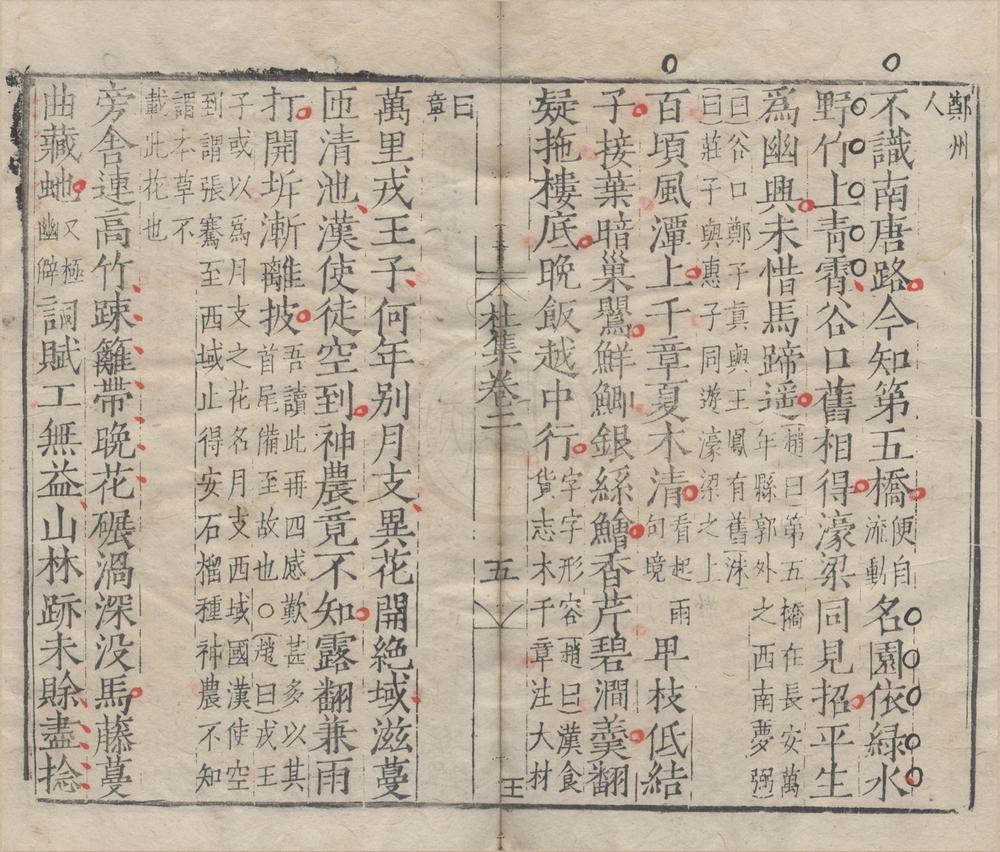 鄭州
人
不識南唐路今知第五橋便自流動名園依緑水
野竹上青霄谷口舊相得濠梁同見招平生
爲幽興未惜馬蹄遥
趙曰第五橋在長安萬
年縣郭外之西南夢弼
曰谷口鄭子真與王鳳有舊洙
曰莊子與惠子同遊濠梁之上
百頃風潭上千章夏木清看起雨句境卑枝低結
子接葉暗巢鸎鮮鯽銀絲鱠香芹碧澗羮翻
疑拖樓底晩飯越中行
字字形容趙曰漢食
貨志木千章注大材
杜集卷二
五
王
曰
章
萬里戎王子何年别月支異花開絶域滋蔓
匝清池漢使徒空到神農竟不知露翻兼雨
打開坼漸離披
吾讀此再四感歎甚多以其
首尾備至故也○趙曰戎王
子或以爲月支之花名月支西域國漢使空
到謂張騫至西域止得安石榴種神農不知
謂本草不
載此花也
旁舍連高竹踈籬帶晩花碾渦深没馬藤蔓
曲藏虵又極幽僻詞賦工無益山林跡未賖盡捻